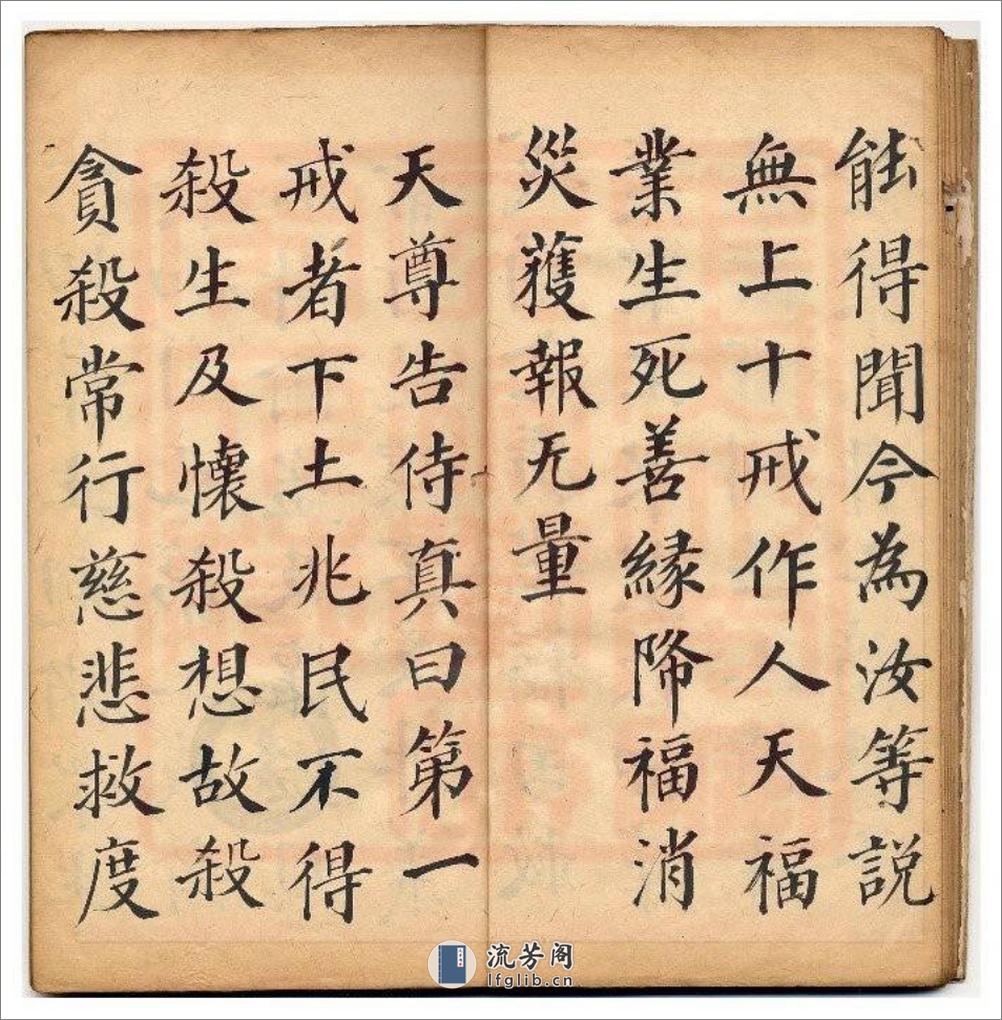 能得聞今為汝等説
無上十戒作人天福
業生死善緣降福消
災獲報无量
天尊告侍真曰第一
戒者下土兆民不得
殺生及懷殺想故殺
貪殺常行慈悲救度
流芳阁
lfglib.cn